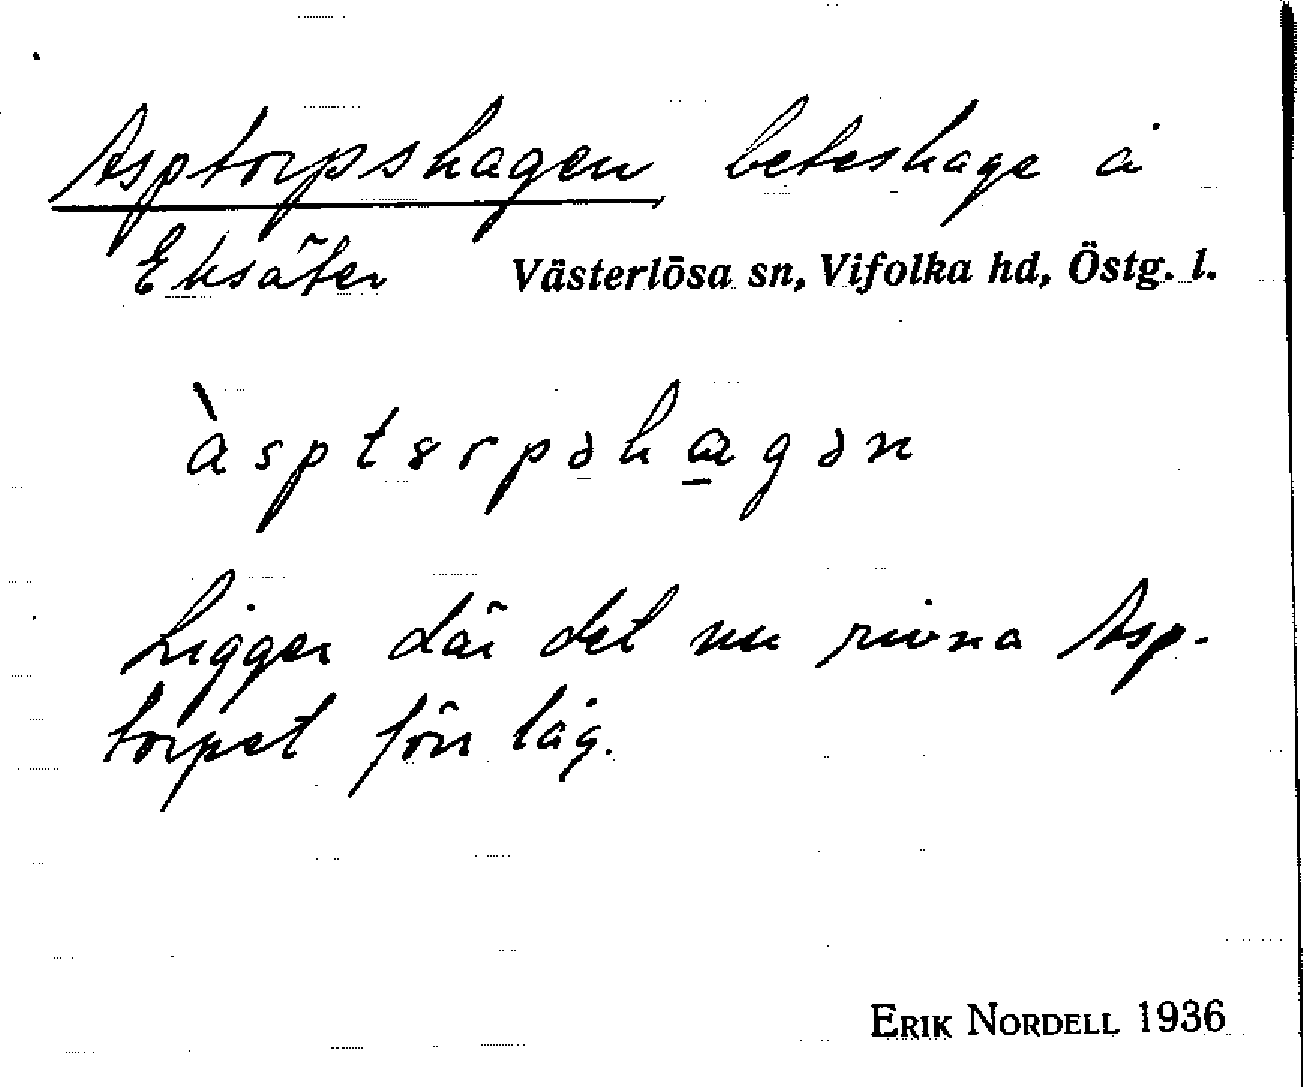 Asptorpshagen beteshage å
Eksäter Västerlösa sn, Vifolka hd, Östg. l.
àspt8rpəhagən
Ligger där det nu rivna Asp-
torpet förr låg.
ERIK NORDELL 1936